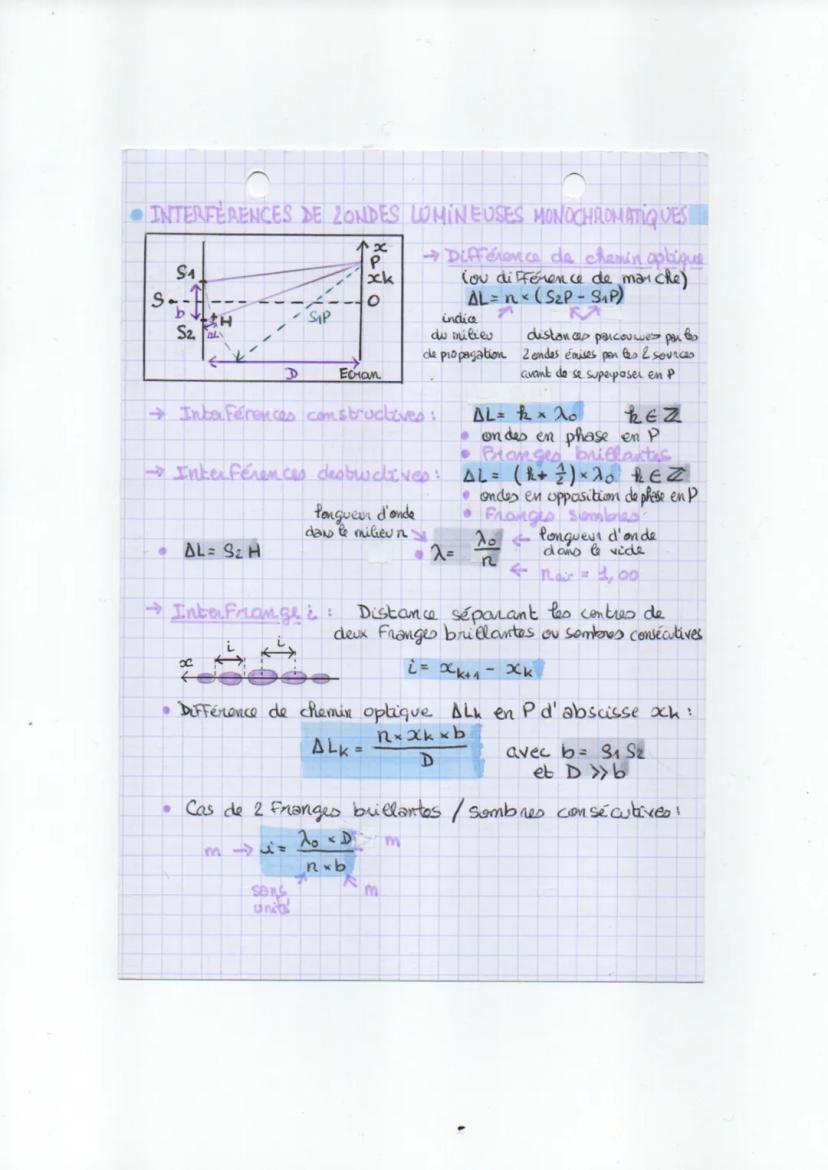 • INTERFÉRENCES DE 2 ONDES LUMINEUSES MONOCHROMATIQUES
x
P
xk
O
S1
S
b
S2
H
ΔL
S1P
D
Ecran
→ Différence de chemin optique
(ou différence de marche)
ΔL = n × (S2P - S1P)
indice
du milieu
de propagation
distances parcourues par les
2 ondes émises par les 2 sources
avant de se superposer en P
→ Interférences constructives : ΔL = k × λ0 k ∈ ℤ
• ondes en phase en P
• Franges brillantes
→ Interférences destructives : ΔL = (k + 1/2) × λ0 k ∈ ℤ
• ondes en opposition de phase en P
• Franges sombres
• ΔL = S2 H
longueur d'onde
dans le milieu n
• λ = λ0 / n
← longueur d'onde
dans le vide
← nair = 1,00
→ Interfrange i : Distance séparant les centres de
deux Franges brillantes ou sombres consécutives
x i i
i = xk+1 - xk
• Différence de chemin optique ΔLk en P d'abscisse xk :
ΔLk = n × xk × b / D
avec b = S1 S2
et D >> b
• Cas de 2 Franges brillantes / Sombres consécutives :
m → i = λ0 × D / n × b
m
sans
unité
m